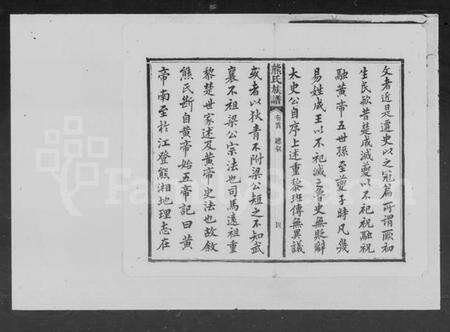 文者近是遷史以之冠篇所謂厥初
生民歟昔楚成滅夔以不祀祝融祝
融黃帝五世孫至夔子時凡幾
易姓成王以不祀滅之魯史無貶辭
太史公自序上述重黎班傳無異議
熊氏族譜 卷首 總敘 四
或者以狄青不附梁公短之不知武
襄不祖梁公宗法也司馬遠祖重
黎楚世家述及黃帝史法也故敘
熊氏斷自黃帝始五帝記曰黃
帝南至於江登熊湘地理志在
FamilySearch